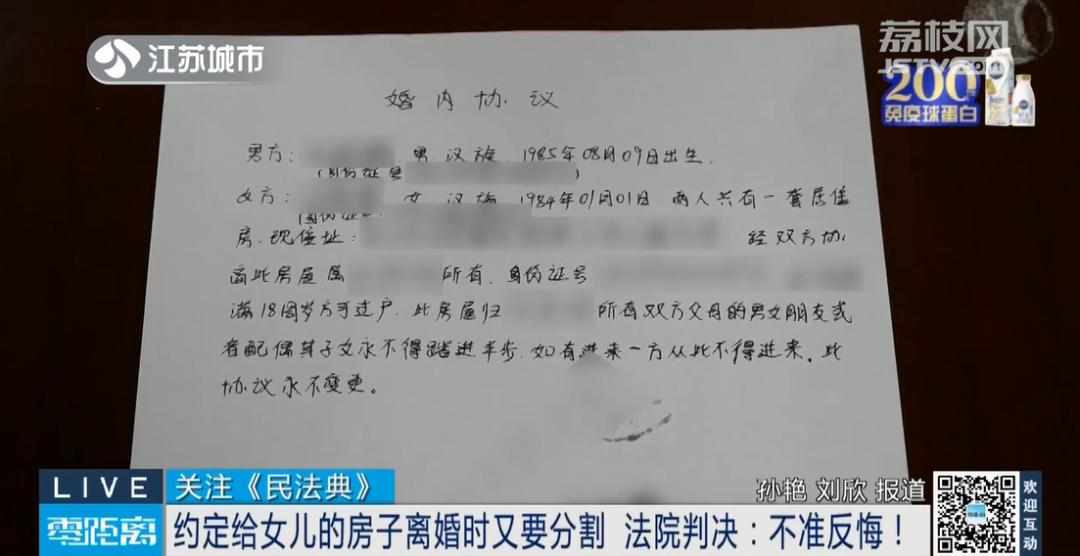 江苏城市
荔枝网
JSTV.COM
200
免疫球蛋白
婚内协议
男方: 男.汉族.1985年08月09日出生.
(身份证号 )
女方: 女.汉族.1984年01月01日.两人共有一套居住
(身份证
房.现住址: 经双方协
商此房屋属 所有.身份证号
满18周岁方可过户.此房屋归 所有双方父母的男女朋友或
者配偶其子女永不得踏进半步.如有进来一方从此不得进来.此
协议永不变更。
LIVE
关注《民法典》
孙艳 刘欣 报道
零距离
约定给女儿的房子离婚时又要分割 法院判决:不准反悔!
欢迎互动